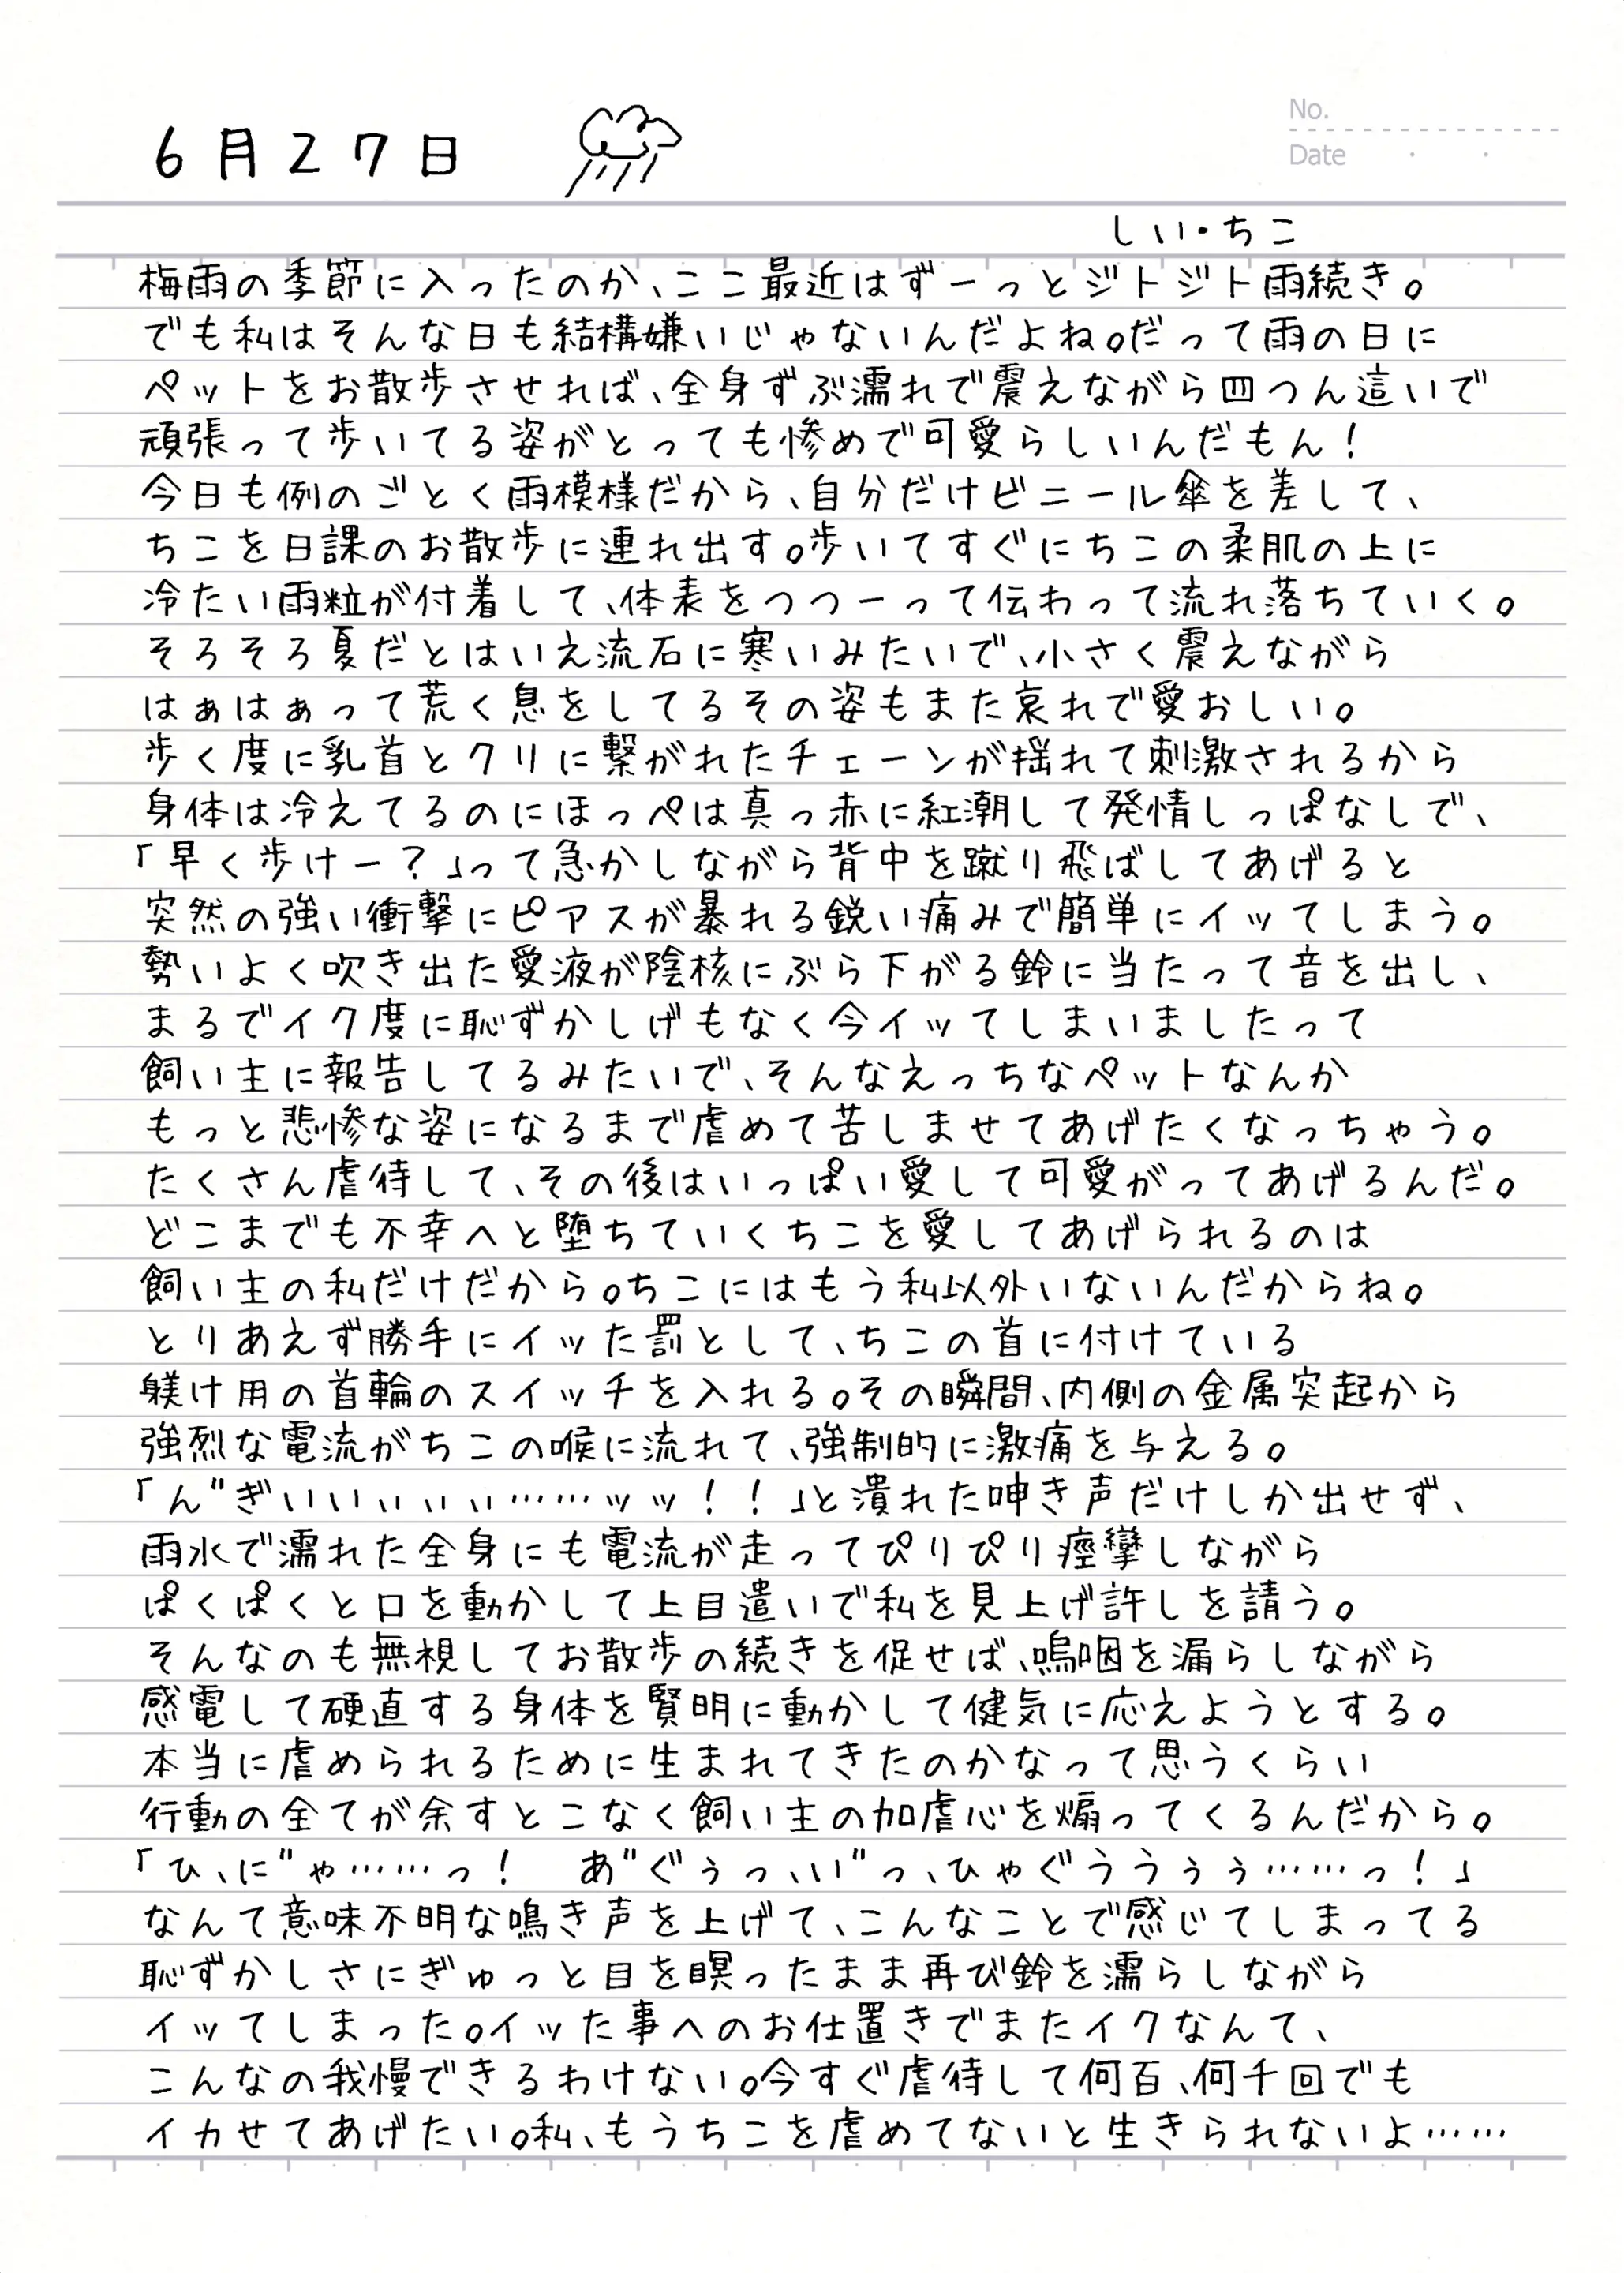 No.
Date
6月27日
しい・ちこ
梅雨の季節に入ったのか、ここ最近はずーっとジトジト雨続き。
でも私はそんな日も結構嫌いじゃないんだよね。だって雨の日に
ペットをお散歩させれば、全身ずぶ濡れで震えながら四つん這いで
頑張って歩いてる姿がとっても惨めで可愛らしいんだもん！
今日も例のごとく雨模様だから、自分だけビニール傘を差して、
ちこを日課のお散歩に連れ出す。歩いてすぐにちこの柔肌の上に
冷たい雨粒が付着して、体表をつつーって伝わって流れ落ちていく。
そろそろ夏だとはいえ流石に寒いみたいで、小さく震えながら
はぁはぁって荒く息をしてるその姿もまた哀れで愛おしい。
歩く度に乳首とクリに繋がれたチェーンが揺れて刺激されるから
身体は冷えてるのにほっぺは真っ赤に紅潮して発情しっぱなしで、
「早く歩けー？」って急かしながら背中を蹴り飛ばしてあげると
突然の強い衝撃にピアスが暴れる鋭い痛みで簡単にイッてしまう。
勢いよく吹き出た愛液が陰核にぶら下がる鈴に当たって音を出し、
まるでイク度に恥ずかしげもなく今イッてしまいましたって
飼い主に報告してるみたいで、そんなえっちなペットなんか
もっと悲惨な姿になるまで虐めて苦しませてあげたくなっちゃう。
たくさん虐待して、その後はいっぱい愛して可愛がってあげるんだ。
どこまでも不幸へと堕ちていくちこを愛してあげられるのは
飼い主の私だけだから。ちこにはもう私以外いないんだからね。
とりあえず勝手にイッた罰として、ちこの首に付けている
躾け用の首輪のスイッチを入れる。その瞬間、内側の金属突起から
強烈な電流がちこの喉に流れて、強制的に激痛を与える。
「ん゛ぎいいぃぃぃ……ッッ！！」と潰れた呻き声だけしか出せず、
雨水で濡れた全身にも電流が走ってぴりぴり痙攣しながら
ぱくぱくと口を動かして上目遣いで私を見上げ許しを請う。
そんなのも無視してお散歩の続きを促せば、嗚咽を漏らしながら
感電して硬直する身体を賢明に動かして健気に応えようとする。
本当に虐められるために生まれてきたのかなって思うくらい
行動の全てが余すとこなく飼い主の加虐心を煽ってくるんだから。
「ひ、に゛ゃ……っ！　あ゛ぐぅっ、い゛っ、ひゃぐううぅぅ……っ！」
なんて意味不明な鳴き声を上げて、こんなことで感じてしまってる
恥ずかしさにぎゅっと目を瞑ったまま再び鈴を濡らしながら
イッてしまった。イッた事へのお仕置きでまたイクなんて、
こんなの我慢できるわけない。今すぐ虐待して何百、何千回でも
イカせてあげたい。私、もうちこを虐めてないと生きられないよ……